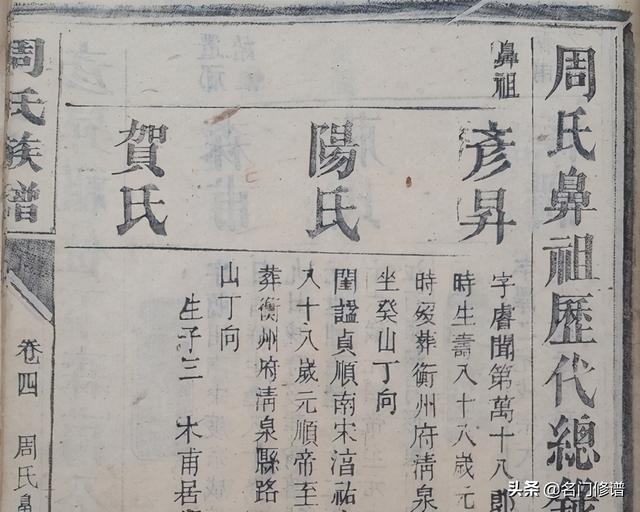 周氏鼻祖歷代總
鼻祖
彥昇
字睿聞第萬十八郎
時生壽八十八歲元
時歿葬衡州府清泉
坐癸山丁向
陽氏
閨謚貞順南宋淳祐
八十八歲元順帝至
葬衡州府清泉縣路
山丁向
生子三 木甫居
賀氏
周氏族譜
卷四 周氏鼻
头条 @名门修谱